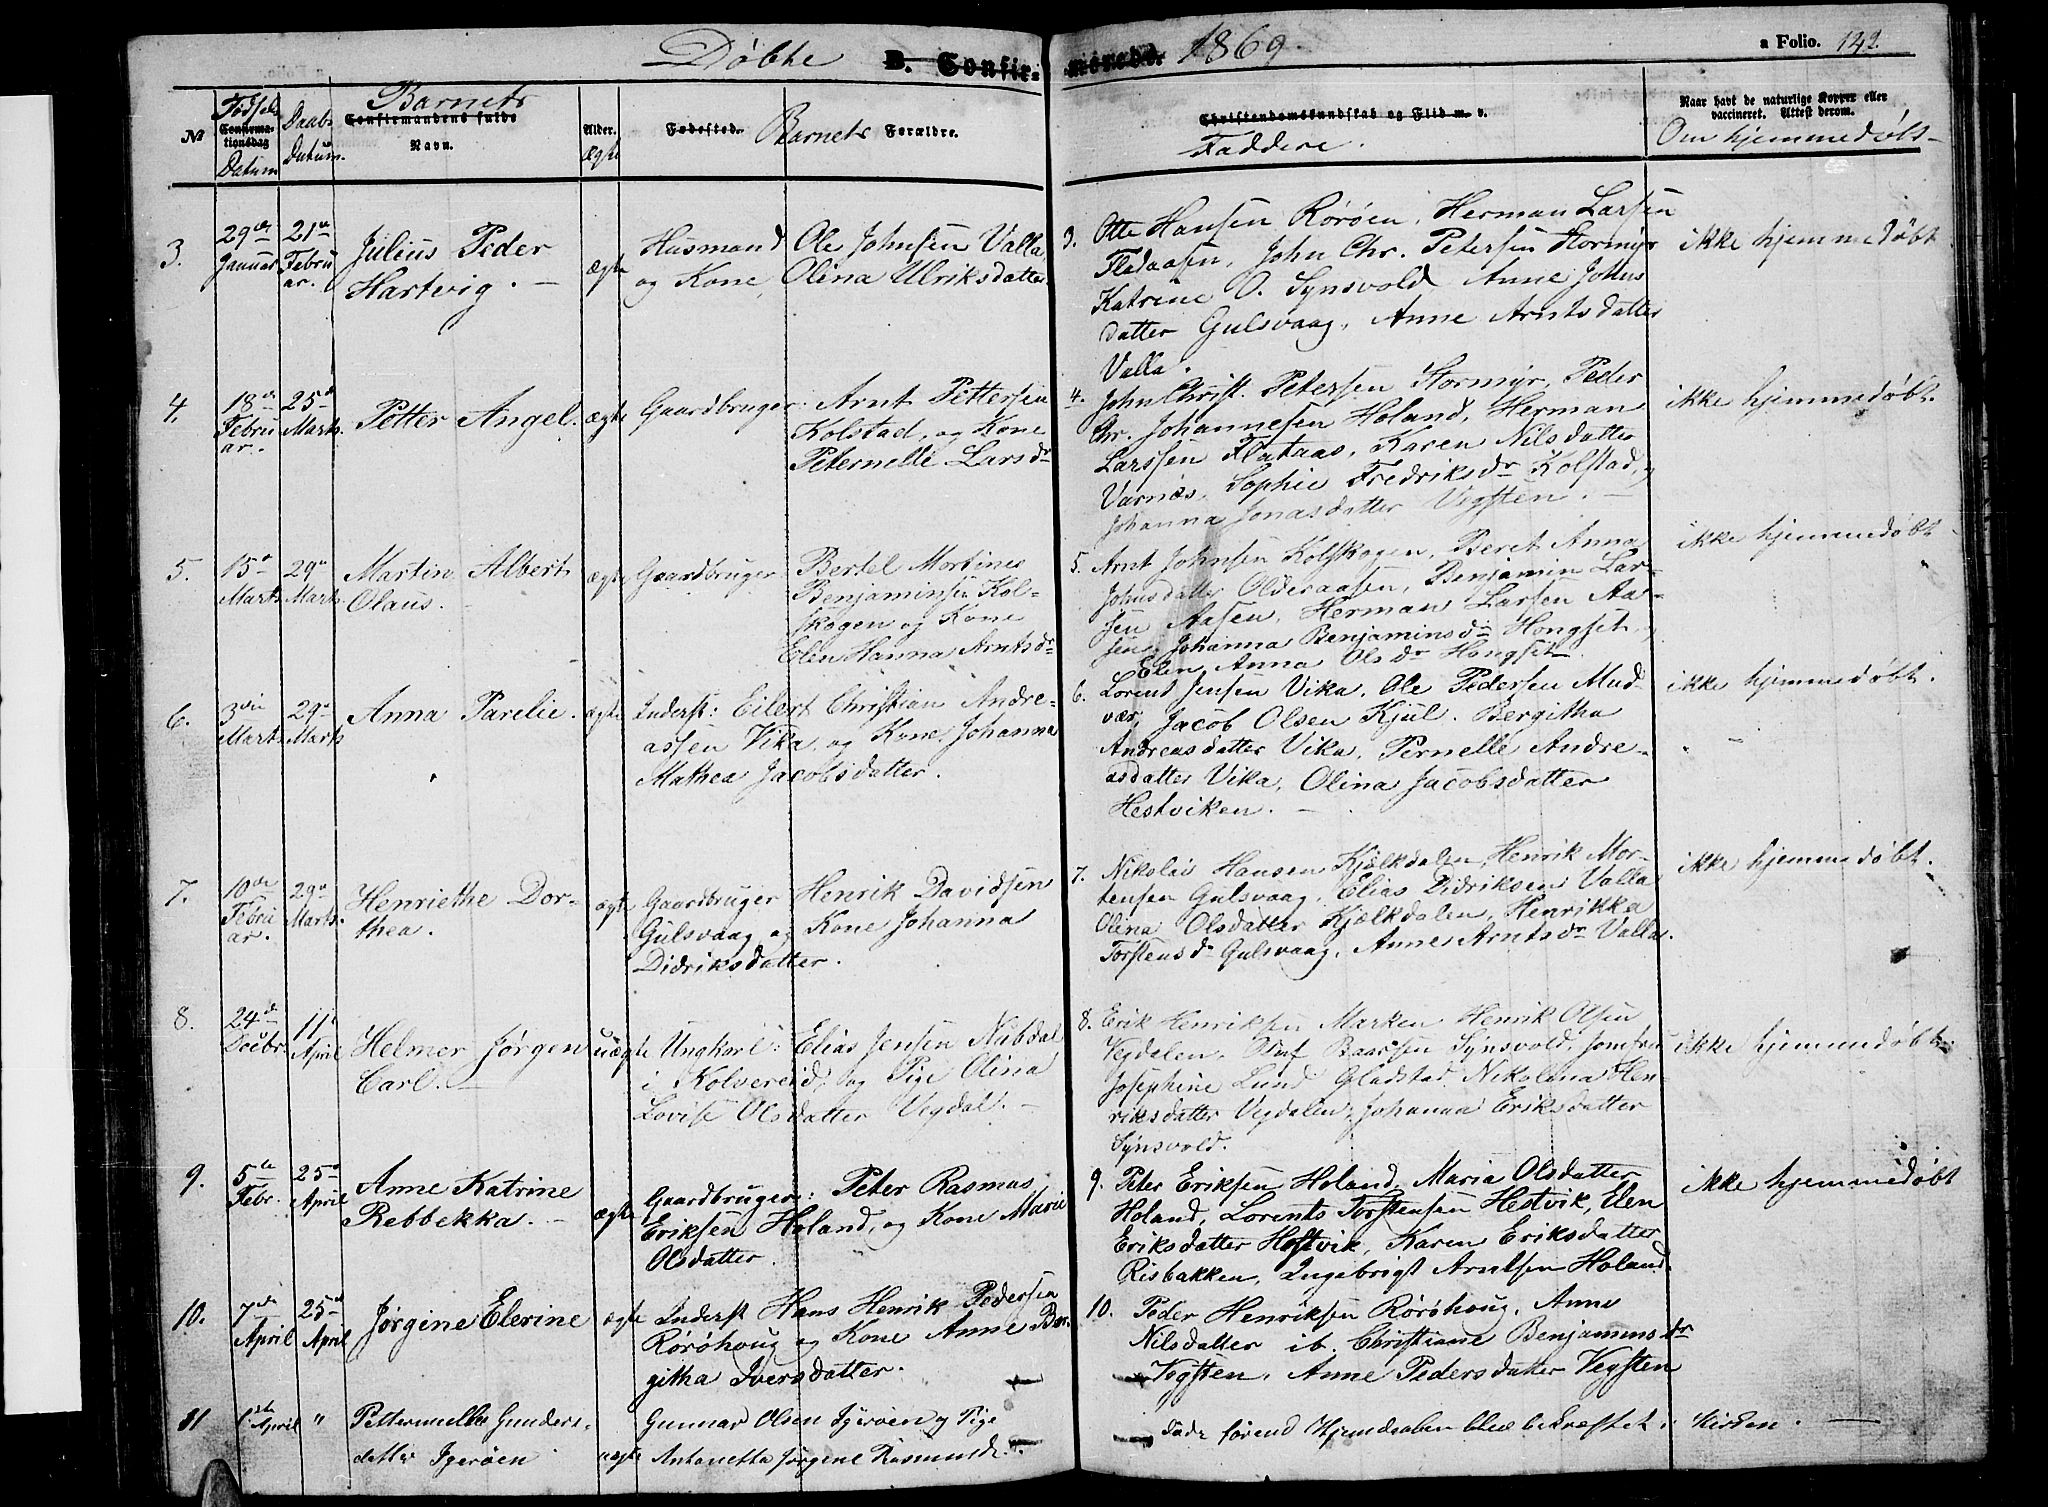 Døbte B. Confir- mérede. 1869. a Folio. 142.
№
Fødsels
Confirma-
tionsdag
Datum
Daabs
Datum.
Barnets
Confirmandens fulde
Navn.
Alder.
ægte
Fødested. Barnets Forældre.
Christendomskundskab og Flid m. v.
Faddere.
Naar havt de naturlige Kopper eller
vaccineret. Attest derom.
Om hjemmedøbt
3.
29de
Januar
21de
Febru
ar.
Julius Peder
Hartvig.
ægte
Husmand Ole Johnsen Valla
og Kone Olina Ulriksdatter.
3. Otte Hansen Rörøen, Herman Larsen
Fladaasen, John Chr. Petersen Stormyr
Katrine O. Synsvold Anne Johns
datter Gulsvaag, Anne Arntsdatter
Valla.
ikke hjemmedøbt
4.
18de
Febru
ar.
25de
Marts.
Petter Angel.
ægte
Gaardbruger: Arnt Pettersen
Kolstad, og Kone
Peternelle Larsdr
4. John Christ. Petersen Stormyr, Peder
Chr. Johannesen Holand, Herman
Larssen Flataas, Karen Nilsdatter
Varnæs, Sophie Fredriksdr Kolstad,
Johanna Jonasdatter Vegsten.
ikke hjemmedøbt.
5.
15de
Marts
29de
Marts.
Martin Albert
Olaus.
ægte
Gaardbruger Bertel Mortines
Benjaminsen Kol-
skogen og Kone
Elen Hanna Arntsdr
5. Arnt Johnsen Kolskogen, Beret Anna
Johnsdatter Olderaasen, Benjamin Lar-
sen Aasen, Herman Larsen Aa-
sen, Johanna Benjaminsdr Hongset
Elen Anna Olsdr Hongset.
ikke hjemmedøbt
6.
3die
Marts
29de
Marts
Anna Parelie.
ægte
Inderst: Eilert Christian Andre-
assen Vika og Kone Johanna
Mathea Jacobsdatter.
6. Lorend Jensen Vika, Ole Pedersen Mud-
vær, Jacob Olsen Kjul. Bergitha
Andreasdatter Vika, Pernelle Andre-
asdatter Vika, Olina Jacobsdatter
Hestviken.
ikke hjemmedøbt.
7.
10de
Febru
ar.
29de
Marts.
Henriethe Dor-
thea.
ægte
Gaardbruger Henrik Davidsen
Gulsvaag og Kone Johanna
Didriksdatter.
7. Nikolai Hansen Kjælkdalen, Henrik Mor-
tensen Gulsvaag, Elias Didriksen Valla
Olina Olsdatter Kjælkdalen, Henrikka
Torstensdr Gulsvaag, Anne Arntsdr Valla.
ikke hjemmedøbt.
8.
24de
Decbr.
11te
April
Helmer Jørgen
Carl.
uægte
Ungkarl: Elias Jensen Nubdal
i Kolvereid, og Pige Olina
Lovise Olsdatter Vegdal.
8. Erik Henriksen Marken Henrik Olsen
Vegdalen, Oluf Baarsen Synsvold, Jomfru
Josephine Lund Gladstad, Nikolina Hen-
riksdatter Vegdalen, Johanna Eriksdatter
Synsvold.
ikke hjemmedøbt
9.
5te
Febr.
25de
April
Anne Katrine
Rebbekka.
ægte
Gaardbruger: Peter Rasmus
Eriksen Holand, og Kone Marie
Olsdatter.
9. Peter Eriksen Holand, Maria Olsdatter
Holand, Lorents Torstensen Hestvik, Elen
Eriksdatter Hestvik, Karen Eriksdatter
Risbakken, Ingebrigt Arntsen Holand.
ikke hjemmedøbt
10.
7de
April
25de
April
Jørgine Elerine
ægte
Inderst Hans Henrik Pedersen
Rörøhoug og Kone Anne Ber-
githa Iversdatter.
10. Peder Henriksen Rörøhoug, Anne
Nilsdatter ib. Christiane Benjaminsdr
Vegsten, Anne Pedersdatter Vegsten
11
1ste April
"
Petternelle Gunders-
datter Igerøen
uægte
Gunnar Olsen Igerøen og Pige
Antonetta Jørgene Rasmusdr.
Død førend Hjemdaaben blev bekræftet i Kirken.